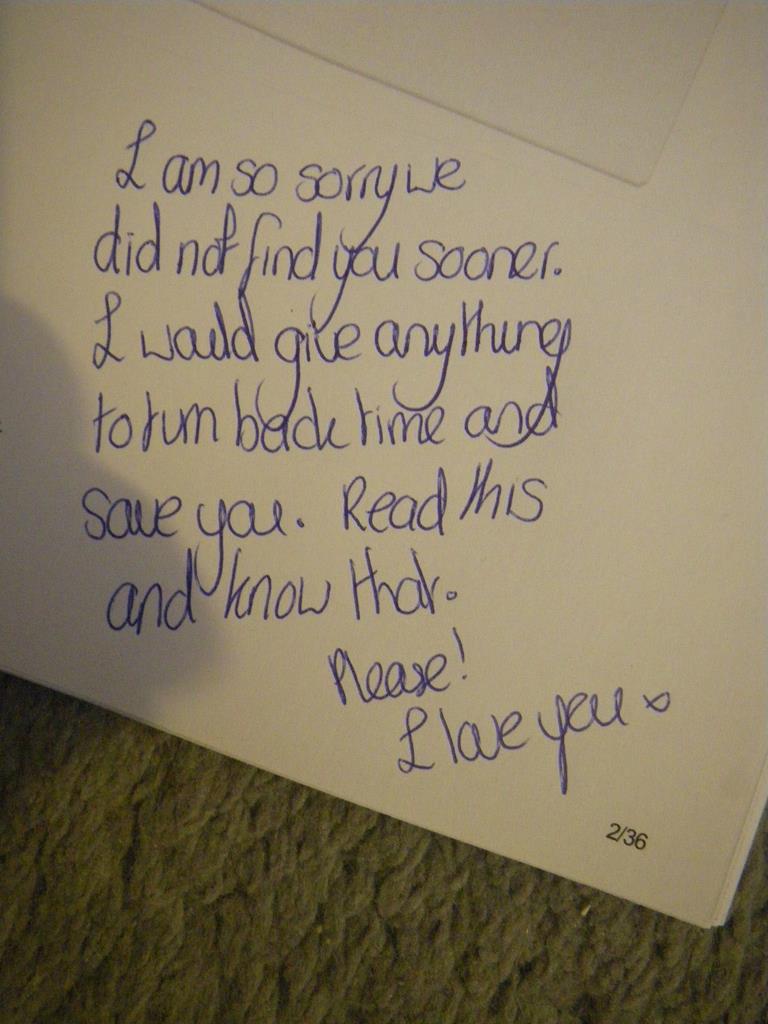 I am so sorry we
did not find you sooner.
I would give anything
to turn back time and
save you. Read this
and know that.
Please!
I love you x
2/36